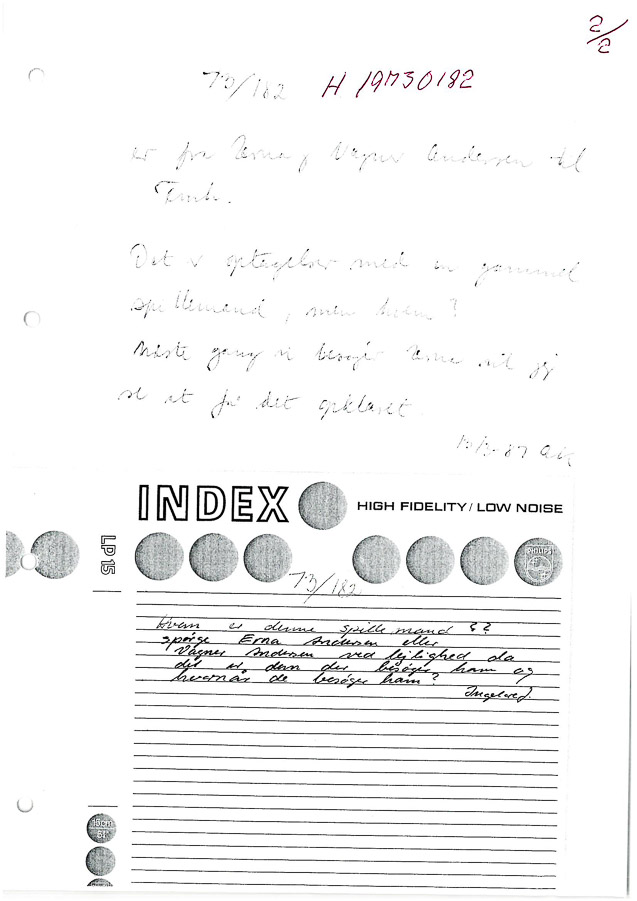 2/2
73/182 H 19730182
er fra Erna, Vagner Andersen til
Det er optagelser med en gammel
spillemand, men hvem?
Næste gang vi besøger Erna vil jeg
se at få det opklaret.
INDEX HIGH FIDELITY / LOW NOISE
LP 15
PHILIPS
73/182
Hvem er denne spillemand ??
spørge Erna Andersen eller
Vagner Andersen ved lejlighed da
det er dem der besøger ham og
hvornår de besøger ham?
15cm